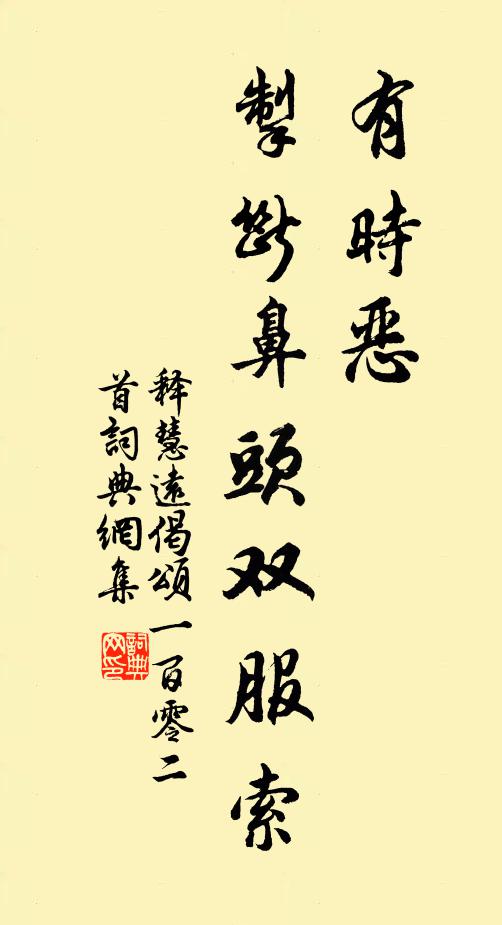 有時惡
掣斷鼻頭双服索
释慧遠偈頌一百零二
首詞典網集
詞典网印